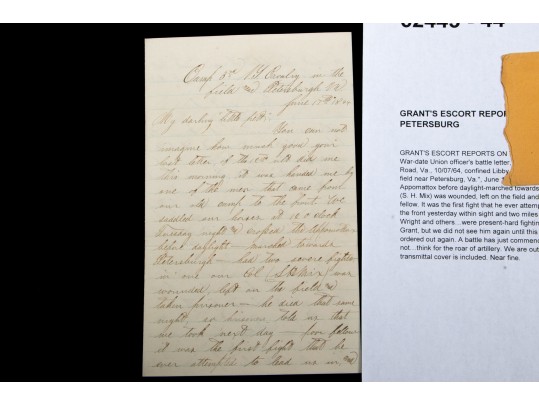 Camp 3rd N.Y. Cavalry in the
field near Petersburgh Va
June 17th 1864
My darling little pet:
You can not
imagine how much good your
last letter of the did me
this morning it was handed me by
one of the men that came from
our old camp to the front. We
saddled our horses at 12 o'clock
night & crossed the Appomattox
before daylight - marched towards
Petersburgh - had two severe fights
in one our Col (S.H. Mix) was
wounded, left on the field &
taken prisoner - he died that same
night, so prisoners told us that
we took next day - poor fellow
it was the first fight that he
ever attempted to lead us in, &
02445 - 44
GRANT'S ESCORT REPOR
PETERSBURG
GRANT'S ESCORT REPORTS ON
War-date Union officer's battle letter,
Road, Va., 10/07/64, confined Libby
field near Petersburg, Va.", June
Appomattox before daylight-marched towards
(S. H. Mix) was wounded, left on the field and
fellow. It was the first fight that he ever attemp
the front yesterday within sight and two miles
Wright and others...were present-hard fighting
Grant, but we did not see him again until this
ordered out again. A battle has just commenc
not...think for the roar of artillery. We are out
transmittal cover is included. Near fine.